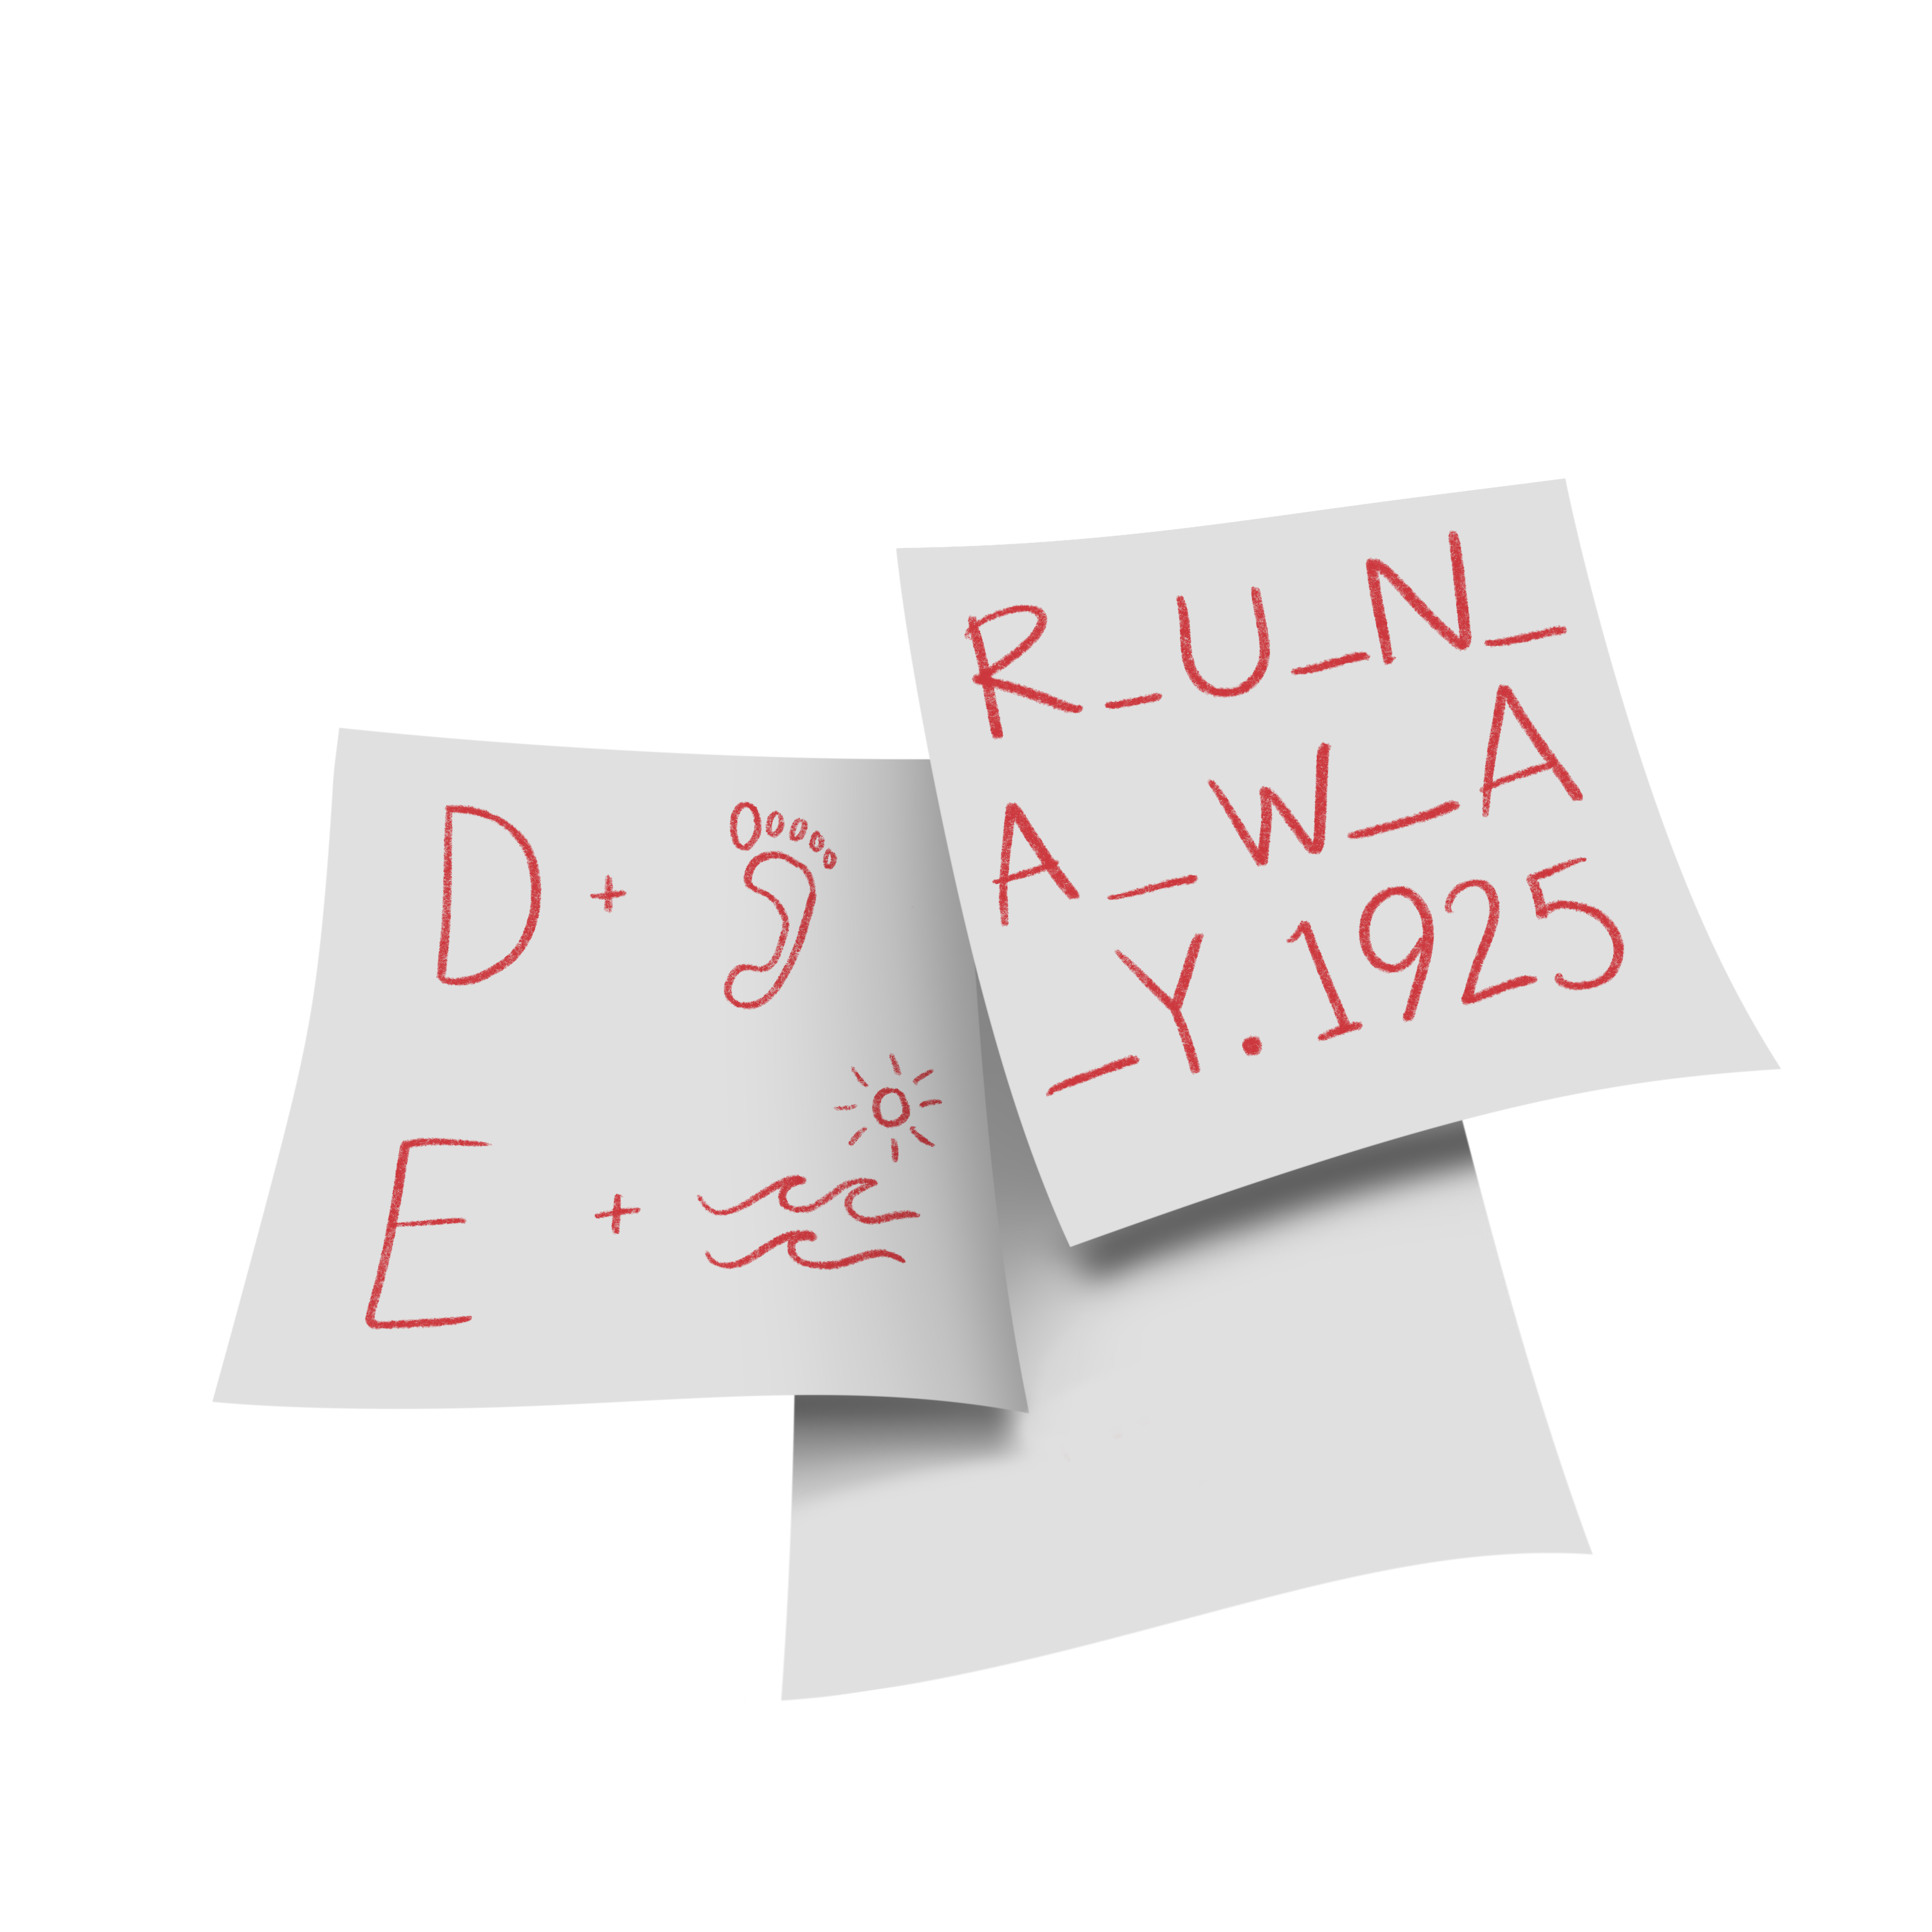 D +
E +
R_U_N_
A_W_A
_Y.1925